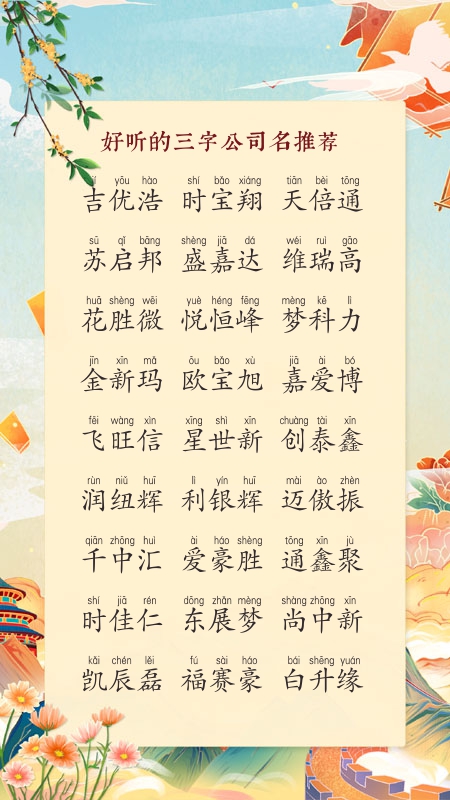 好听的三字公司名推荐
yōu hào shí bǎo xiáng tiān bèi tōng
吉优浩 时宝翔 天倍通
sū qǐ bāng shèng jiā dá wéi ruì gāo
苏启邦 盛嘉达 维瑞高
huā shèng wēi yuè héng fēng mèng kē lì
花胜微 悦恒峰 梦科力
jīn xīn mǎ ōu bǎo xù jiā ài bó
金新玛 欧宝旭 嘉爱博
fēi wàng xìn xīng shì xīn chuàng tài xīn
飞旺信 星世新 创泰鑫
rùn niǔ huī lì yín huī mài ào zhèn
润纽辉 利银辉 迈傲振
qiān zhōng huì ài háo shèng tōng xīn jù
千中汇 爱豪胜 通鑫聚
shí jiā rén dōng zhǎn mèng shàng zhōng xīn
时佳仁 东展梦 尚中新
kǎi chén lěi fú sài háo bái shēng yuán
凯辰磊 福赛豪 白升缘